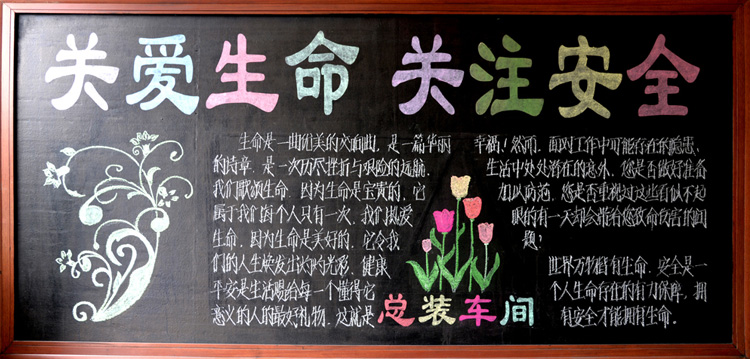 关爱生命 关注安全
生命是一曲优美的交响曲，是一篇华丽
的诗章，是一次历尽挫折与艰险的远航，
我们歌颂生命，因为生命是宝贵的，它
属于我们每个人只有一次，我们热爱
生命，因为生命是美好的，它令我
们的人生焕发出灼灼光彩，健康
平安是生活赐给每一个懂得它
意义的人的最好礼物，这就是
幸福！然而，面对工作中可能存在的隐患，
生活中处处潜在的意外，您是否做好准备
加以防范，您是否重视过这些看似不起
眼的有一天却会带有您致命伤害的问
题？
世界万物皆有生命，安全是一
个人生命存在的有力保障，拥
有安全才能拥有生命。
总装车间